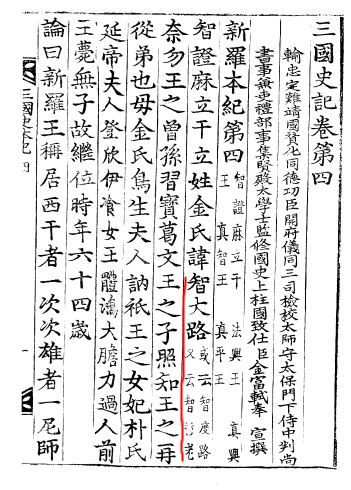 三國史記卷第四
輸忠定難靖國贊化同德功臣開府儀同三司檢校太師守太保門下侍中判尚
書事兼吏禮部事集賢殿太學士監修國史上柱國致仕臣金富軾奉 宣撰
新羅本紀第四 智證麻立干 法興王 真興王 真智王 真平王
智證麻立干立姓金氏諱智大路 或云智度路又云智哲老
奈勿王之曾孫習寶葛文王之子照知王之再
從弟也母金氏鳥生夫人訥祇王之女妃朴氏
延帝夫人登欣伊飡女王體鴻大膽力過人前
王薨無子故繼位時年六十四歲
論曰新羅王稱居西干者一次次雄者一尼師
三國史記 四